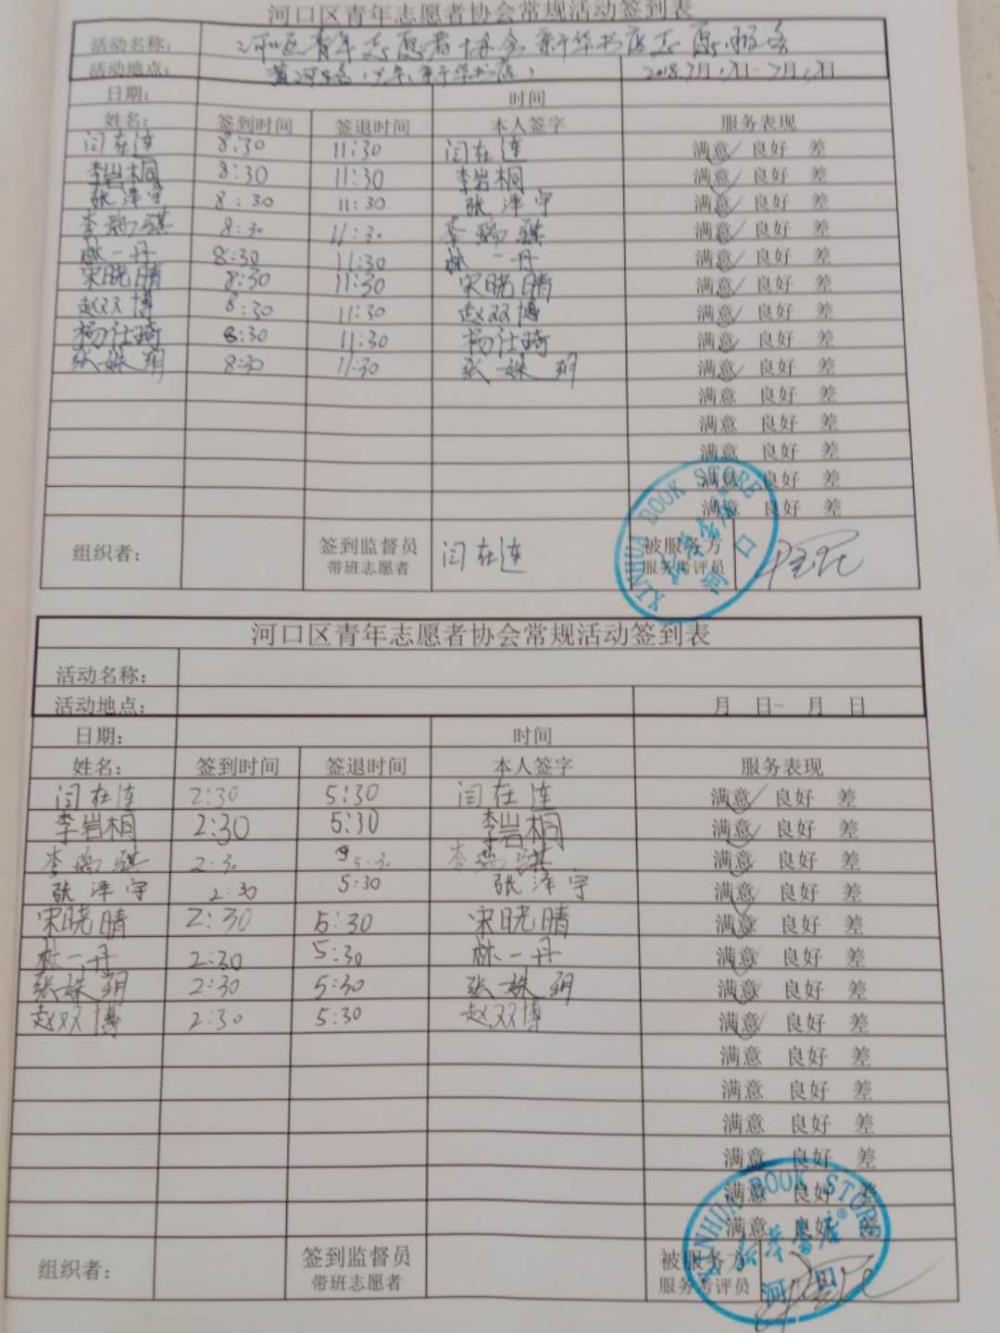 河口区青年志愿者协会常规活动签到表
活动名称: 河口区青年志愿者协会新华书店志愿服务
活动地点: 2018.7月
日期: 时间
姓名: 签到时间 签退时间 本人签字 服务表现
闫在连 8:30 11:30 闫在连 满意✓ 良好 差
李岩桐 8:30 11:30 李岩桐 满意✓ 良好 差
张泽宇 8:30 11:30 张泽宇 满意✓ 良好 差
李瑞骐 8:30 11:30 李瑞骐 满意✓ 良好 差
林一丹 8:30 11:30 林一丹 满意✓ 良好 差
宋晓晴 8:30 11:30 宋晓晴 满意✓ 良好 差
赵双博 8:30 11:30 赵双博 满意✓ 良好 差
杨仕琦 8:30 11:30 杨仕琦 满意✓ 良好 差
张姝玥 8:30 11:30 张姝玥 满意✓ 良好 差
满意 良好 差
满意 良好 差
满意 良好 差
满意 良好 差
满意 良好 差
组织者: 签到监督员 闫在连 被服务方
带班志愿者 服务考评员
XINHUA BOOK STORE
新华书店
河口
河口区青年志愿者协会常规活动签到表
活动名称:
活动地点: 月 日- 月 日
日期: 时间
姓名: 签到时间 签退时间 本人签字 服务表现
闫在连 2:30 5:30 闫在连 满意✓ 良好 差
李岩桐 2:30 5:30 李岩桐 满意✓ 良好 差
李瑞骐 2:30 5:30 李瑞骐 满意✓ 良好 差
张泽宇 2:30 5:30 张泽宇 满意✓ 良好 差
宋晓晴 2:30 5:30 宋晓晴 满意✓ 良好 差
林一丹 2:30 5:30 林一丹 满意✓ 良好 差
张姝玥 2:30 5:30 张姝玥 满意✓ 良好 差
赵双博 2:30 5:30 赵双博 满意✓ 良好 差
满意 良好 差
满意 良好 差
满意 良好 差
满意 良好 差
满意 良好 差
满意 良好 差
组织者: 签到监督员 被服务方
带班志愿者 服务考评员
XINHUA BOOK STORE
新华书店
河口